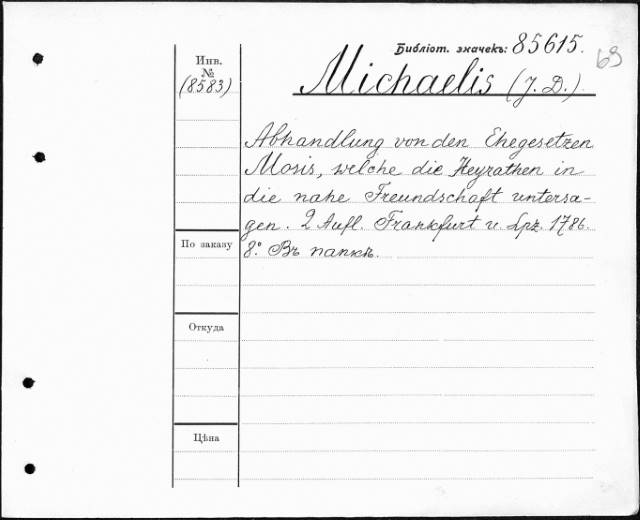 Библіот. значекъ: 85615.
69
Инв.
№
(8583)
Michaelis (J. D.)
Abhandlung von den Ehegesetzen
Mosis, welche die Heyrathen in
die nahe Freundschaft untersa-
gen. 2 Aufl. Frankfurt u. Lpz. 1786.
8.° Въ папкѣ.
По заказу
Откуда
Цѣна